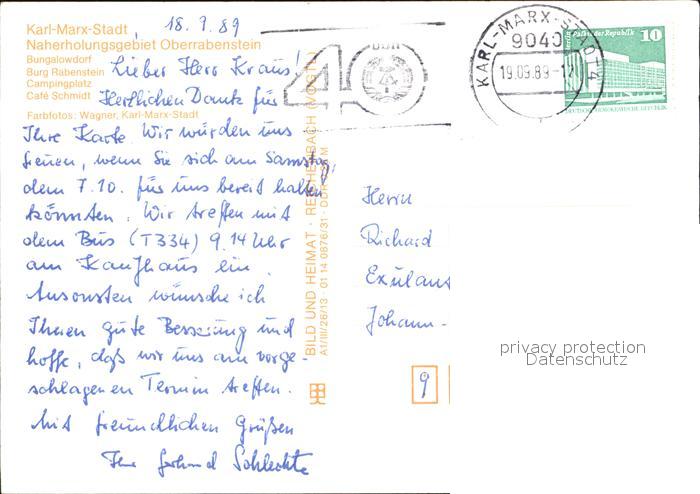 Karl-Marx-Stadt, 18.9.89
Naherholungsgebiet Oberrabenstein
Bungalowdorf
Burg Rabenstein
Campingplatz
Café Schmidt
Farbfotos: Wagner, Karl-Marx-Stadt
Lieber Herr Kraus!
Herzlichen Dank für
Ihre Karte. Wir würden uns
freuen, wenn Sie sich am Samstag,
dem 7.10. für uns bereit halten
könnten. Wir treffen mit
dem Bus (T334) 9.14 Uhr
am Kaufhaus ein.
Ansonsten wünsche ich
Ihnen gute Besserung und
hoffe, daß wir uns am vorge-
schlagenen Termin treffen.
Mit freundlichen Grüßen
Ihr Gerhard Schlechte
BILD UND HEIMAT · REICHENBACH (VOGTL)
A1/III/26/13 · 01 14 0876/31 · DDR
40
DDR
KARL-MARX-STADT 4
9040
19.09.89-17
Palast der Republik 10
DEUTSCHE DEMOKRATISCHE REPUBLIK
Herrn
Richard
Exulant
Johann-
9
privacy protection
Datenschutz